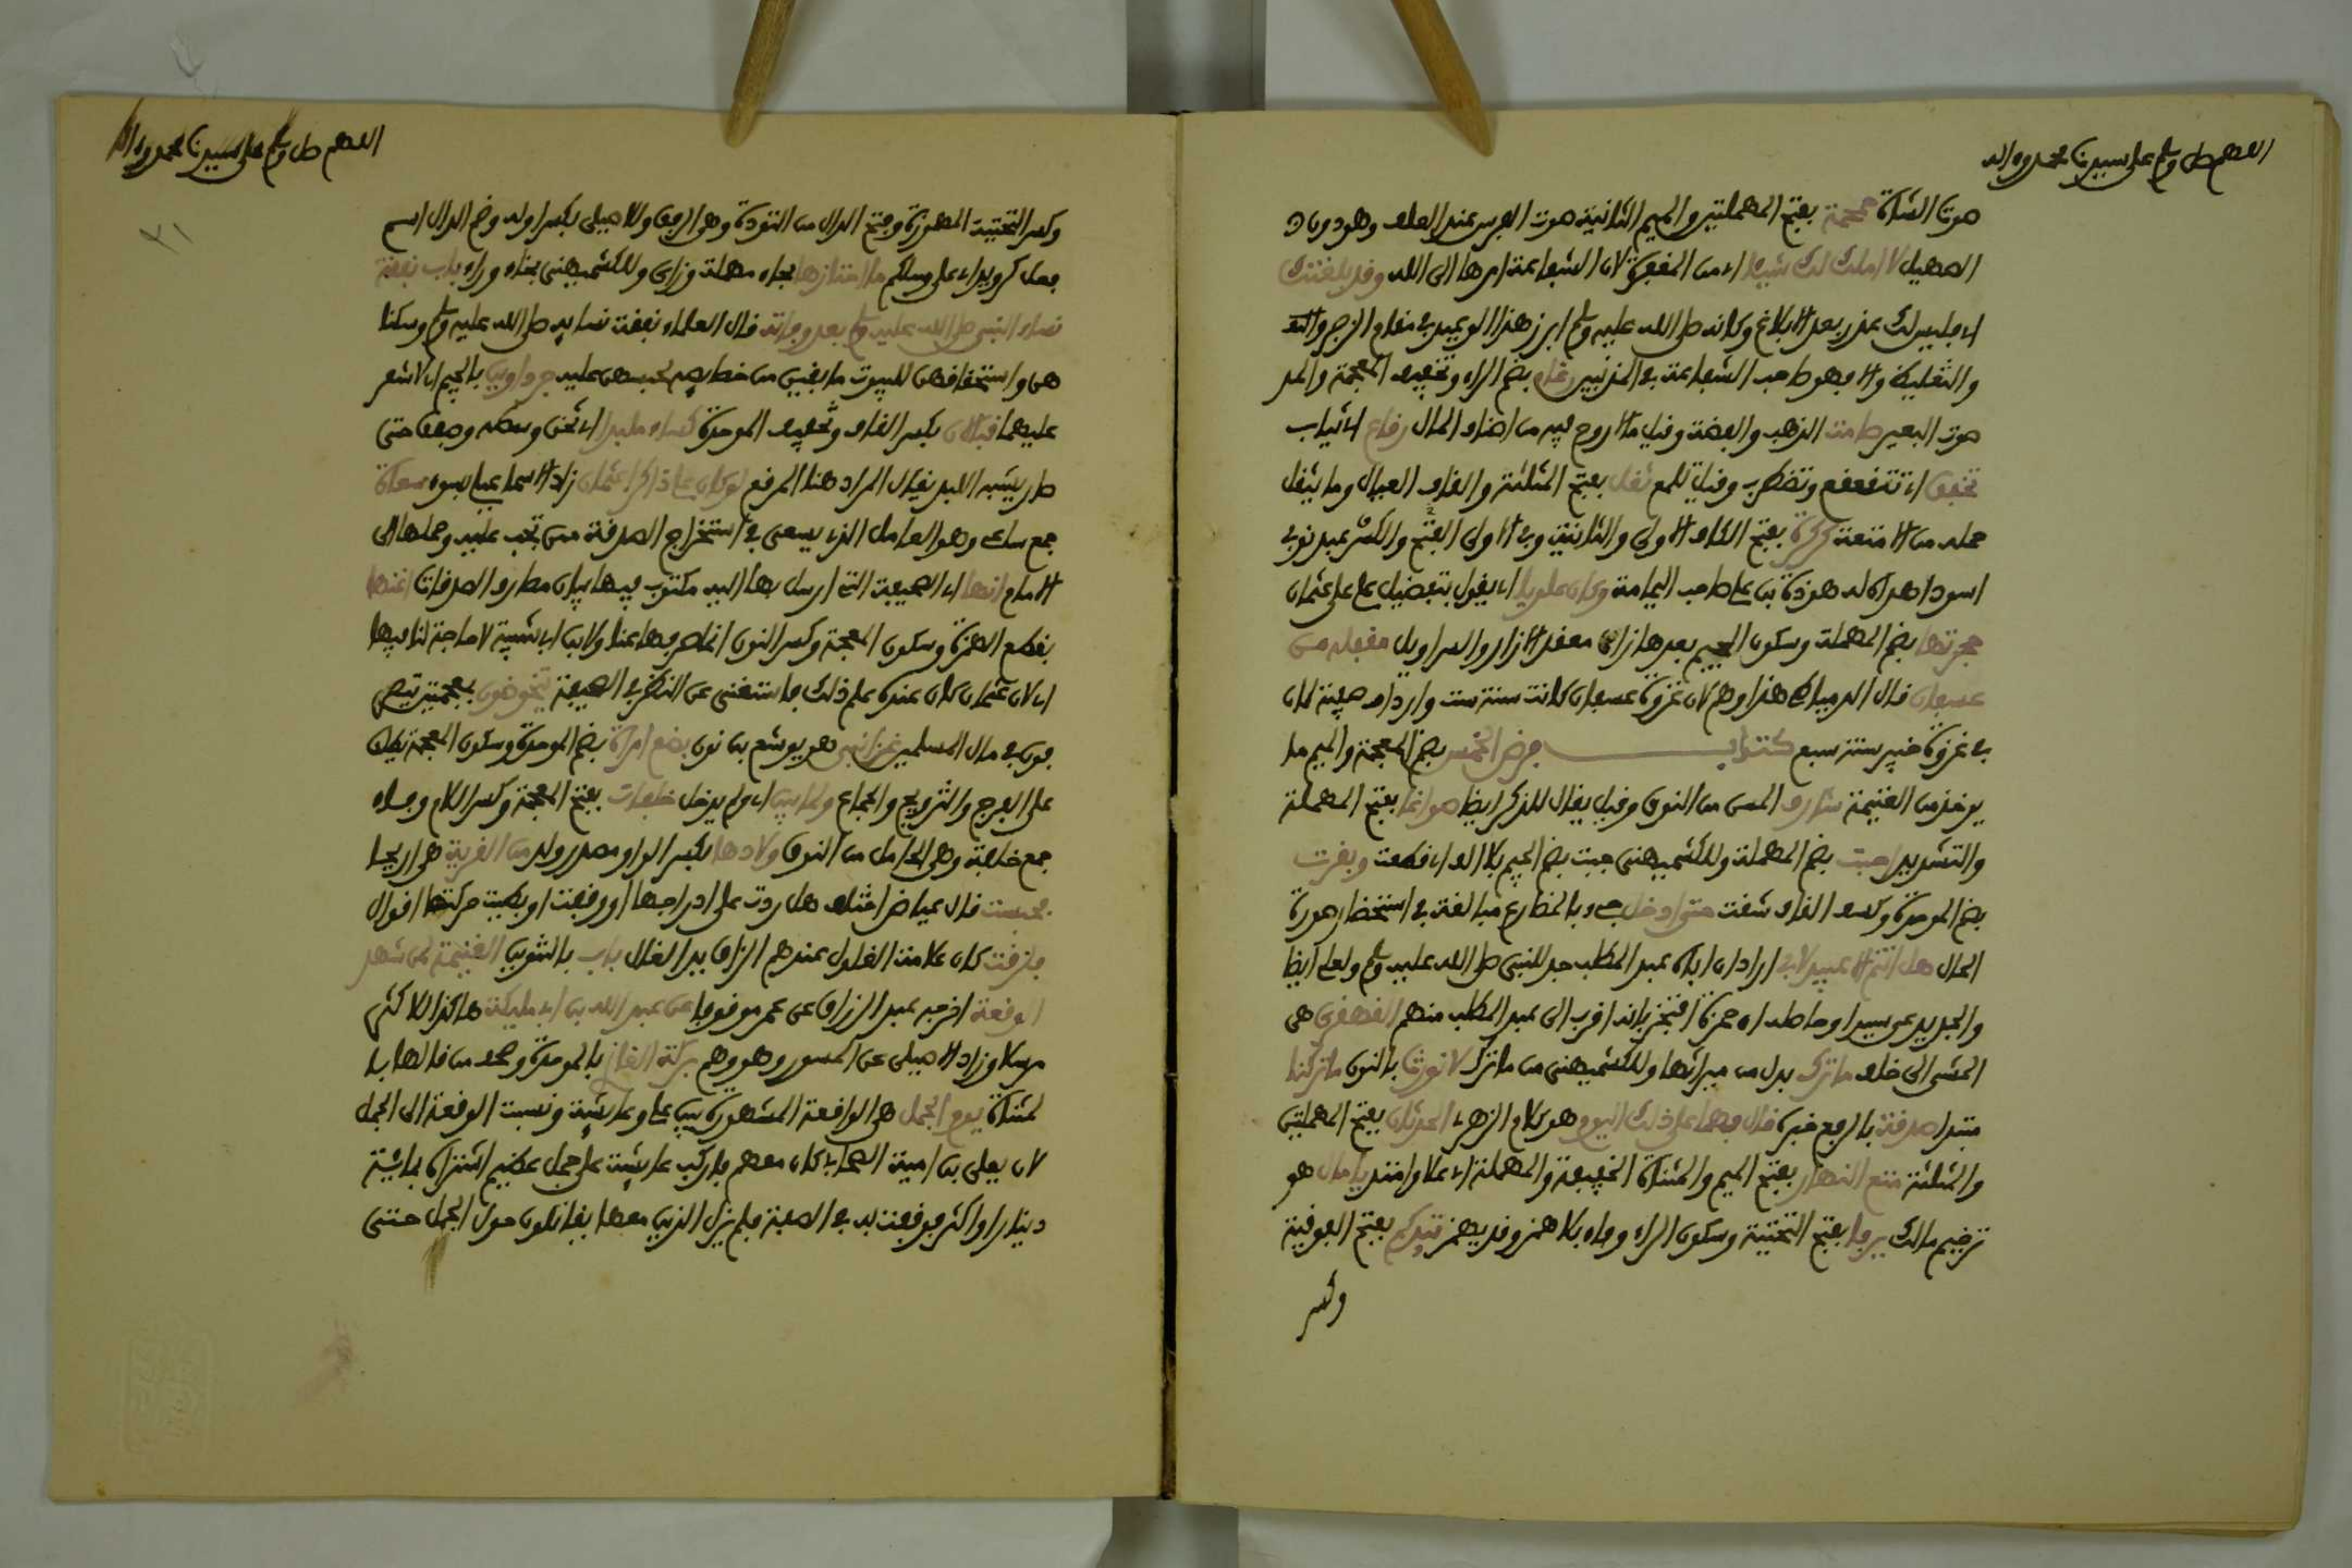 اللهم صل وسلم على سيدنا محمد وءاله
صوت الشاة حمحمة بفتح المهملتين والميم الثانية صوت الفرس عند العلف وهو دون
الصهيل لا املك لك شيئا اي من المغفرة لان الشفاعة امرها الى الله وقد بلغتك
اي فليس لك عذر بعد الابلاغ وكانه صلى الله عليه وسلم ابرز هذا الوعيد في مقام الزجر
والتغليظ والا فهو صاحب الشفاعة في المذنبين رغاء بضم الراء وتخفيف المعجمة والمد
صوت البعير صامت الذهب والفضة وقيل ما لا روح فيه من اصناف المال رقاع اي ثياب
تخفق اي تتقعقع وتضطرب وقيل تلمع ثقل بفتح المثلثة والقاف العيال وما يثقل
حمله من الامتعة كركرة بفتح الكاف الاولى والثانية وفي الاولى الفتح والكسر عبد نوبي
اسود اهداه له هوذة بن علي صاحب اليمامة وكان علويا اي يقول بتفضيل علي على عثمان
حجزتها بضم المهملة وسكون الجيم بعدها زاي معقد الازار والسراويل مقفله من
عسفان قال الدمياطي هذا وهم لان غزوة عسفان كانت سنة ست وارداف صفية كان
في غزوة خيبر سنة سبع كتاب فرض الخمس بضم المعجمة والميم ما
يوخذ من الغنيمة شارف المسن من النوق وقيل يقال للذكر ايضا صواغا بفتح المهملة
والتشديد اجبت بضم المهملة وللكشميهني جبت بضم الجيم بلا الف اي قطعت وبقرت
بضم الموحدة وكسر القاف شقت حتى ادخل جيء بالمضارع مبالغة في استحضار صورة
الحال هل انتم الا عبيد لابي اراد ان اباه عبد المطلب جد للنبي صلى الله عليه وسلم ولعلي ايضا
والجد يدعى سيدا وحاصله ان حمزة افتخر بانه اقرب الى عبد المطلب منهم القهقرى هي
المشي الى خلف ما ترك بدل من ميراثها وللكشميهني من ما ترك لا نورث بالنون ما تركنا
مبتدا صدقة بالرفع خبره قال فهما على ذلك اليوم هو كلام الزهري الحدثان بفتح المهملتين
والمثلثة متع النهار بفتح الميم والمثناة الخفيفة والمهملة اي علا وامتد يا مال هو
ترخيم مالك يرفا بفتح التحتية وسكون الراء وفاء بلا همز وقد يهمز تيدكم بفتح الفوقية
وكسر
اللهم صل وسلم على سيدنا محمد وءاله
وكسر التحتية المهموزة وفتح الدال من التؤدة وهو الرفق وللاصيلي بكسر اوله وضم الدال اسم
فعل كرويدا اي على رسلكم ما احتازها بحاء مهملة وزاي وللكشميهني بخاء وراء باب نفقة
نساء النبي صلى الله عليه وسلم بعد وفاته قال العلماء نفقة نسايه صلى الله عليه وسلم وسكنا
هن واستحقاقهن للبيوت ما بقين من خصايصه لحبسهن عليه جرداوين بالجيم اي لا شعر
عليهما قبالان بكسر القاف وتخفيف الموحدة كساء ملبدا اي ثخن وسطه وصفق حتى
صار يشبه اللبد يقال المراد هنا المرقع لو كان علي ذاكرا عثمان زاد الاسماعيلي بسوء سعاة
جمع ساع وهو العامل الذي يسعى في استخراج الصدقة ممن تجب عليه وحملها الى
الامام انها اي الصحيفة التي ارسل بها اليه مكتوب فيها بيان مصارف الصدقات اغنها
بقطع الهمزة وسكون المعجمة وكسر النون اي اصرفها عنا ولابن ابي شيبة لا حاجة لنا فيها
اي لان عثمان كان عنده علم ذلك فاستغنى عن النظر في الصحيفة يتخوضون بمعجمتين يتصر
فون في مال المسلمين غزا نبي هو يوشع بن نون بضع امراة بضم الموحدة وسكون المعجمة يطلق
على الفرج والتزويج والجماع ولما يبن اي ولم يدخل خلفات بفتح المعجمة وكسر اللام وفاء
جمع خلفة وهي الحامل من النوق ولادها بكسر الواو مصدر ولد من القرية هي اريحا
فحبست قال عياض اختلف هل ردت على ادراجها او وقفت او بطئت حركتها اقوال
فلزقت كان علامة الغلول عندهم الزاق يد الغال باب بالتنوين الغنيمة لمن شهد
الوقعة اخرجه عبد الرزاق عن عمر موقوفا عن عبد الله بن ابي مليكة هاكذا للاكثر
مرسلا وزاد الاصيلي عن المسور وهو وهم بركة الغازي بالموحدة وصحف من قالها با
لمثناة يوم الجمل هي الواقعة المشهورة بين علي وعايشة ونسبت الوقعة الى الجمل
لان يعلى بن امية الصحابي كان معهم فاركب عايشة على جمل عظيم اشتراه بماية
دينار او اكثر فوقفت به في الصف فلم يزل الذين معها يقاتلون حول الجمل حتى
٢١